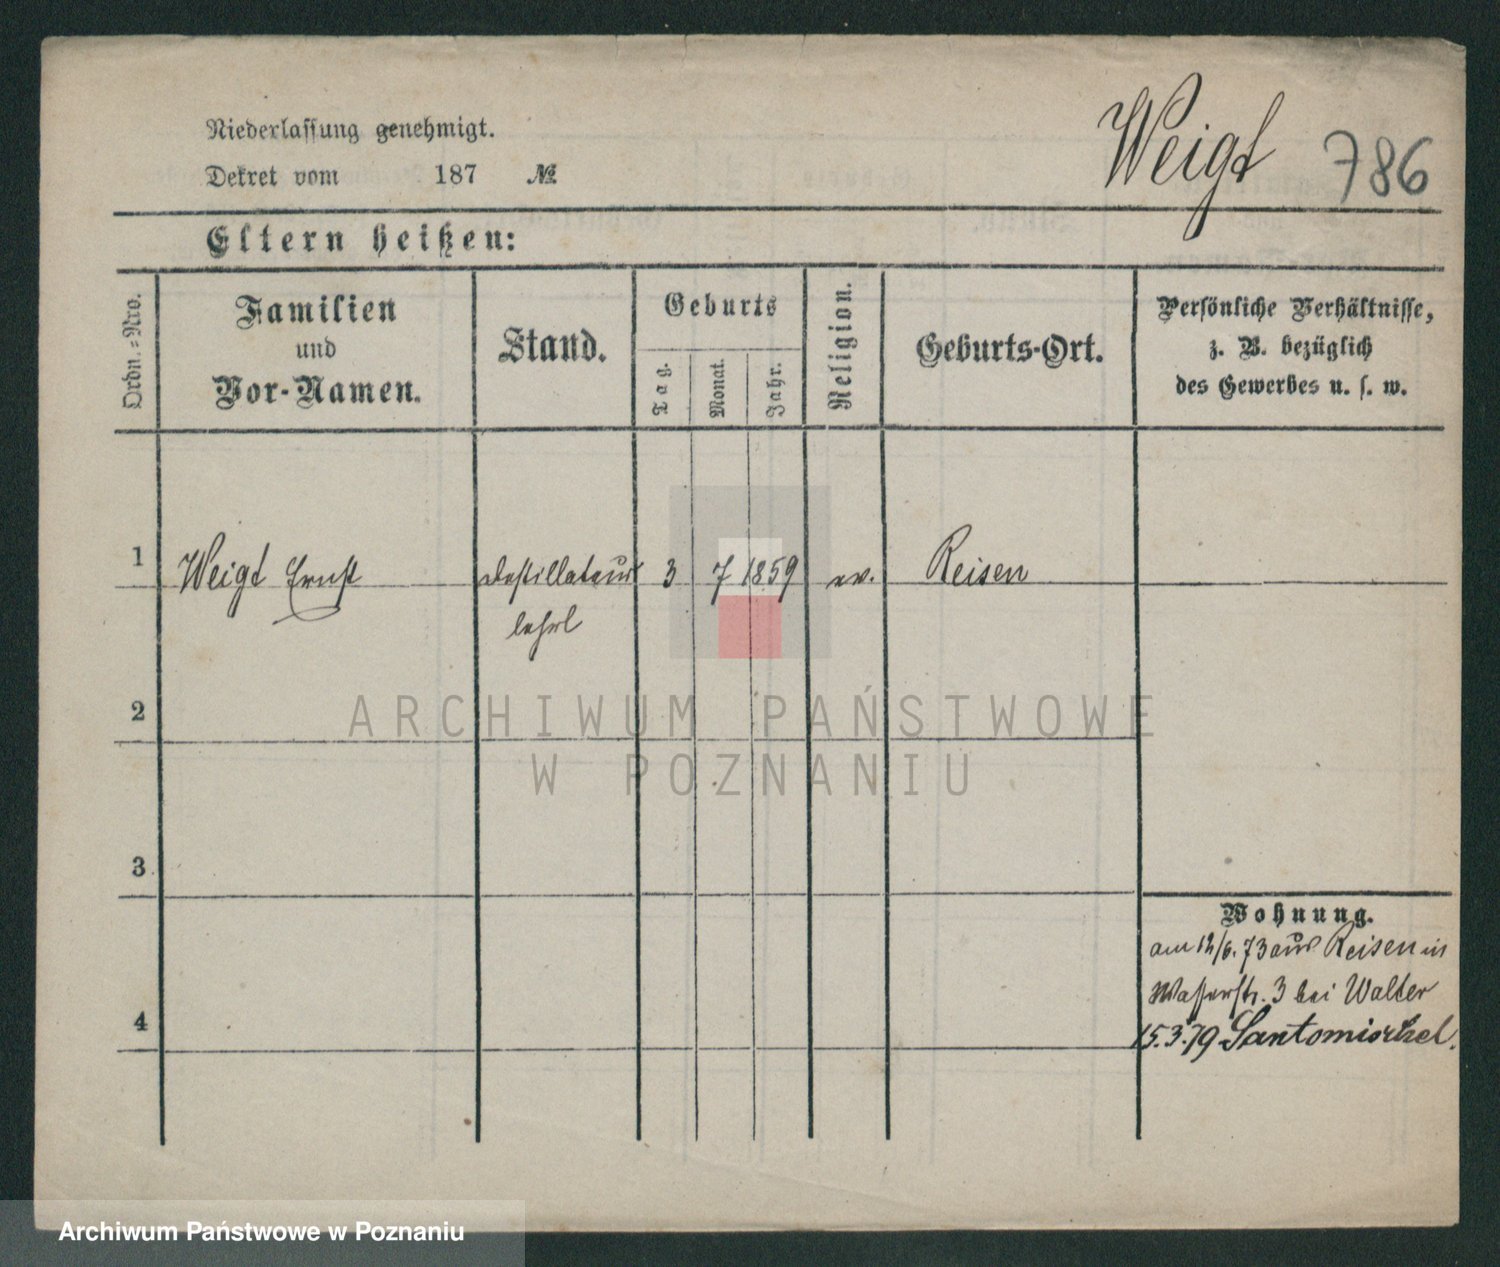 Niederlassung genehmigt.
Weigt 786
Dekret vom 187 №
Eltern heißen:
Ordn.=Nro.
Familien
und
Vor-Namen.
Stand.
Geburts
Tag.
Monat.
Jahr.
Religion.
Geburts-Ort.
Persönliche Verhältnisse,
z. B. bezüglich
des Gewerbes u. s. w.
1 Weigt Ernst Destillateur 3 7 1859 ev. Reisen
lehrl
2
ARCHIWUM PAŃSTWOWE
W POZNANIU
3
Wohnung.
am 12/6. 73 aus Reisen in
Wasserstr. 3 bei Walter
4
15.3.79 Santomischel.
Archiwum Państwowe w Poznaniu